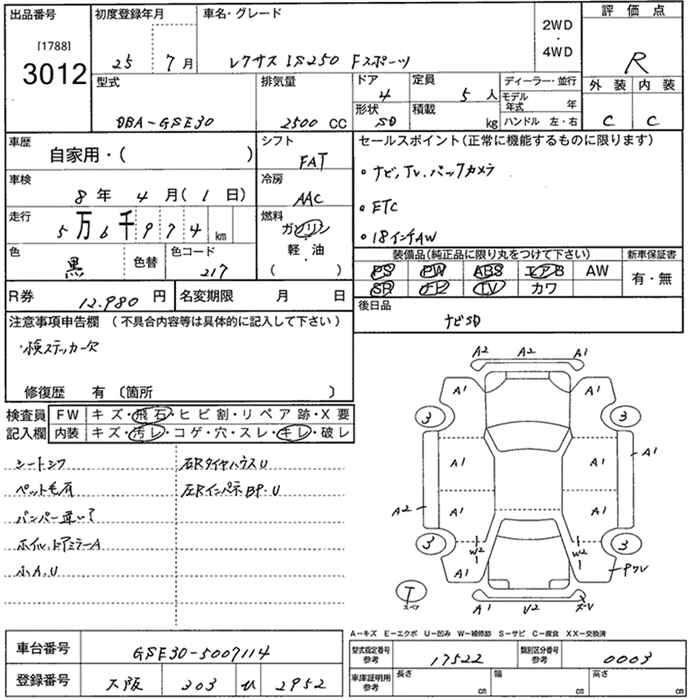 出品番号 初度登録年月 車名・グレード 2WD・4WD 評価点
[1788]
3012 25 7月 レクサス IS250 Fスポーツ R
型式 排気量 ドア 4 定員 5人 ディーラー・並行 外装 内装
DBA-GSE30 2500 CC 形状 SD 積載 kg モデル年式 年 C C
ハンドル 左・右
車歴 自家用・( ) シフト FAT セールスポイント(正常に機能するものに限ります)
車検 8年 4月(1日) 冷房 AAC ・ナビ,TV,バックカメラ
走行 5万6千974km 燃料 ガソリン ・ETC
軽・油 ・18インチAW
色 黒 色替 色コード 217 ( )
装備品(純正品に限り丸をつけて下さい) 新車保証書
PS PW ABS エアB AW 有・無
SR ナビ TV カワ
R券 12.980円 名変期限 月 日 後日品
ナビSD
注意事項申告欄 (不具合内容等は具体的に記入して下さい)
・検ステッカー欠
修復歴 有〔箇所 〕
検査員 FW キズ・飛石・ヒビ割・リペア跡・X要
記入欄 内装 キズ・汚レ・コゲ・穴・スレ・キレ・破レ
シートシワ 右RタイヤハウスU
ペット毛有 左Rインパネ BP.U
バンパー
ホイル,ドアミラーA
小A.U
A2 A2 A1
A1 A1
3 3
A1 A1 A1
A2 A1 A1
3 W2 W2 3
A1 A1
T
スペア
A1 U2
A-キズ E-エクボ U-凹み W-補修跡 S-サビ C-腐食 XX-交換済
車台番号 GSE30-5007114
型式指定番号 参考 17522 類別区分番号 参考 0003
登録番号 大阪 303 ひ 2952
車庫証明用 参考 長さ cm 幅 cm 高さ cm